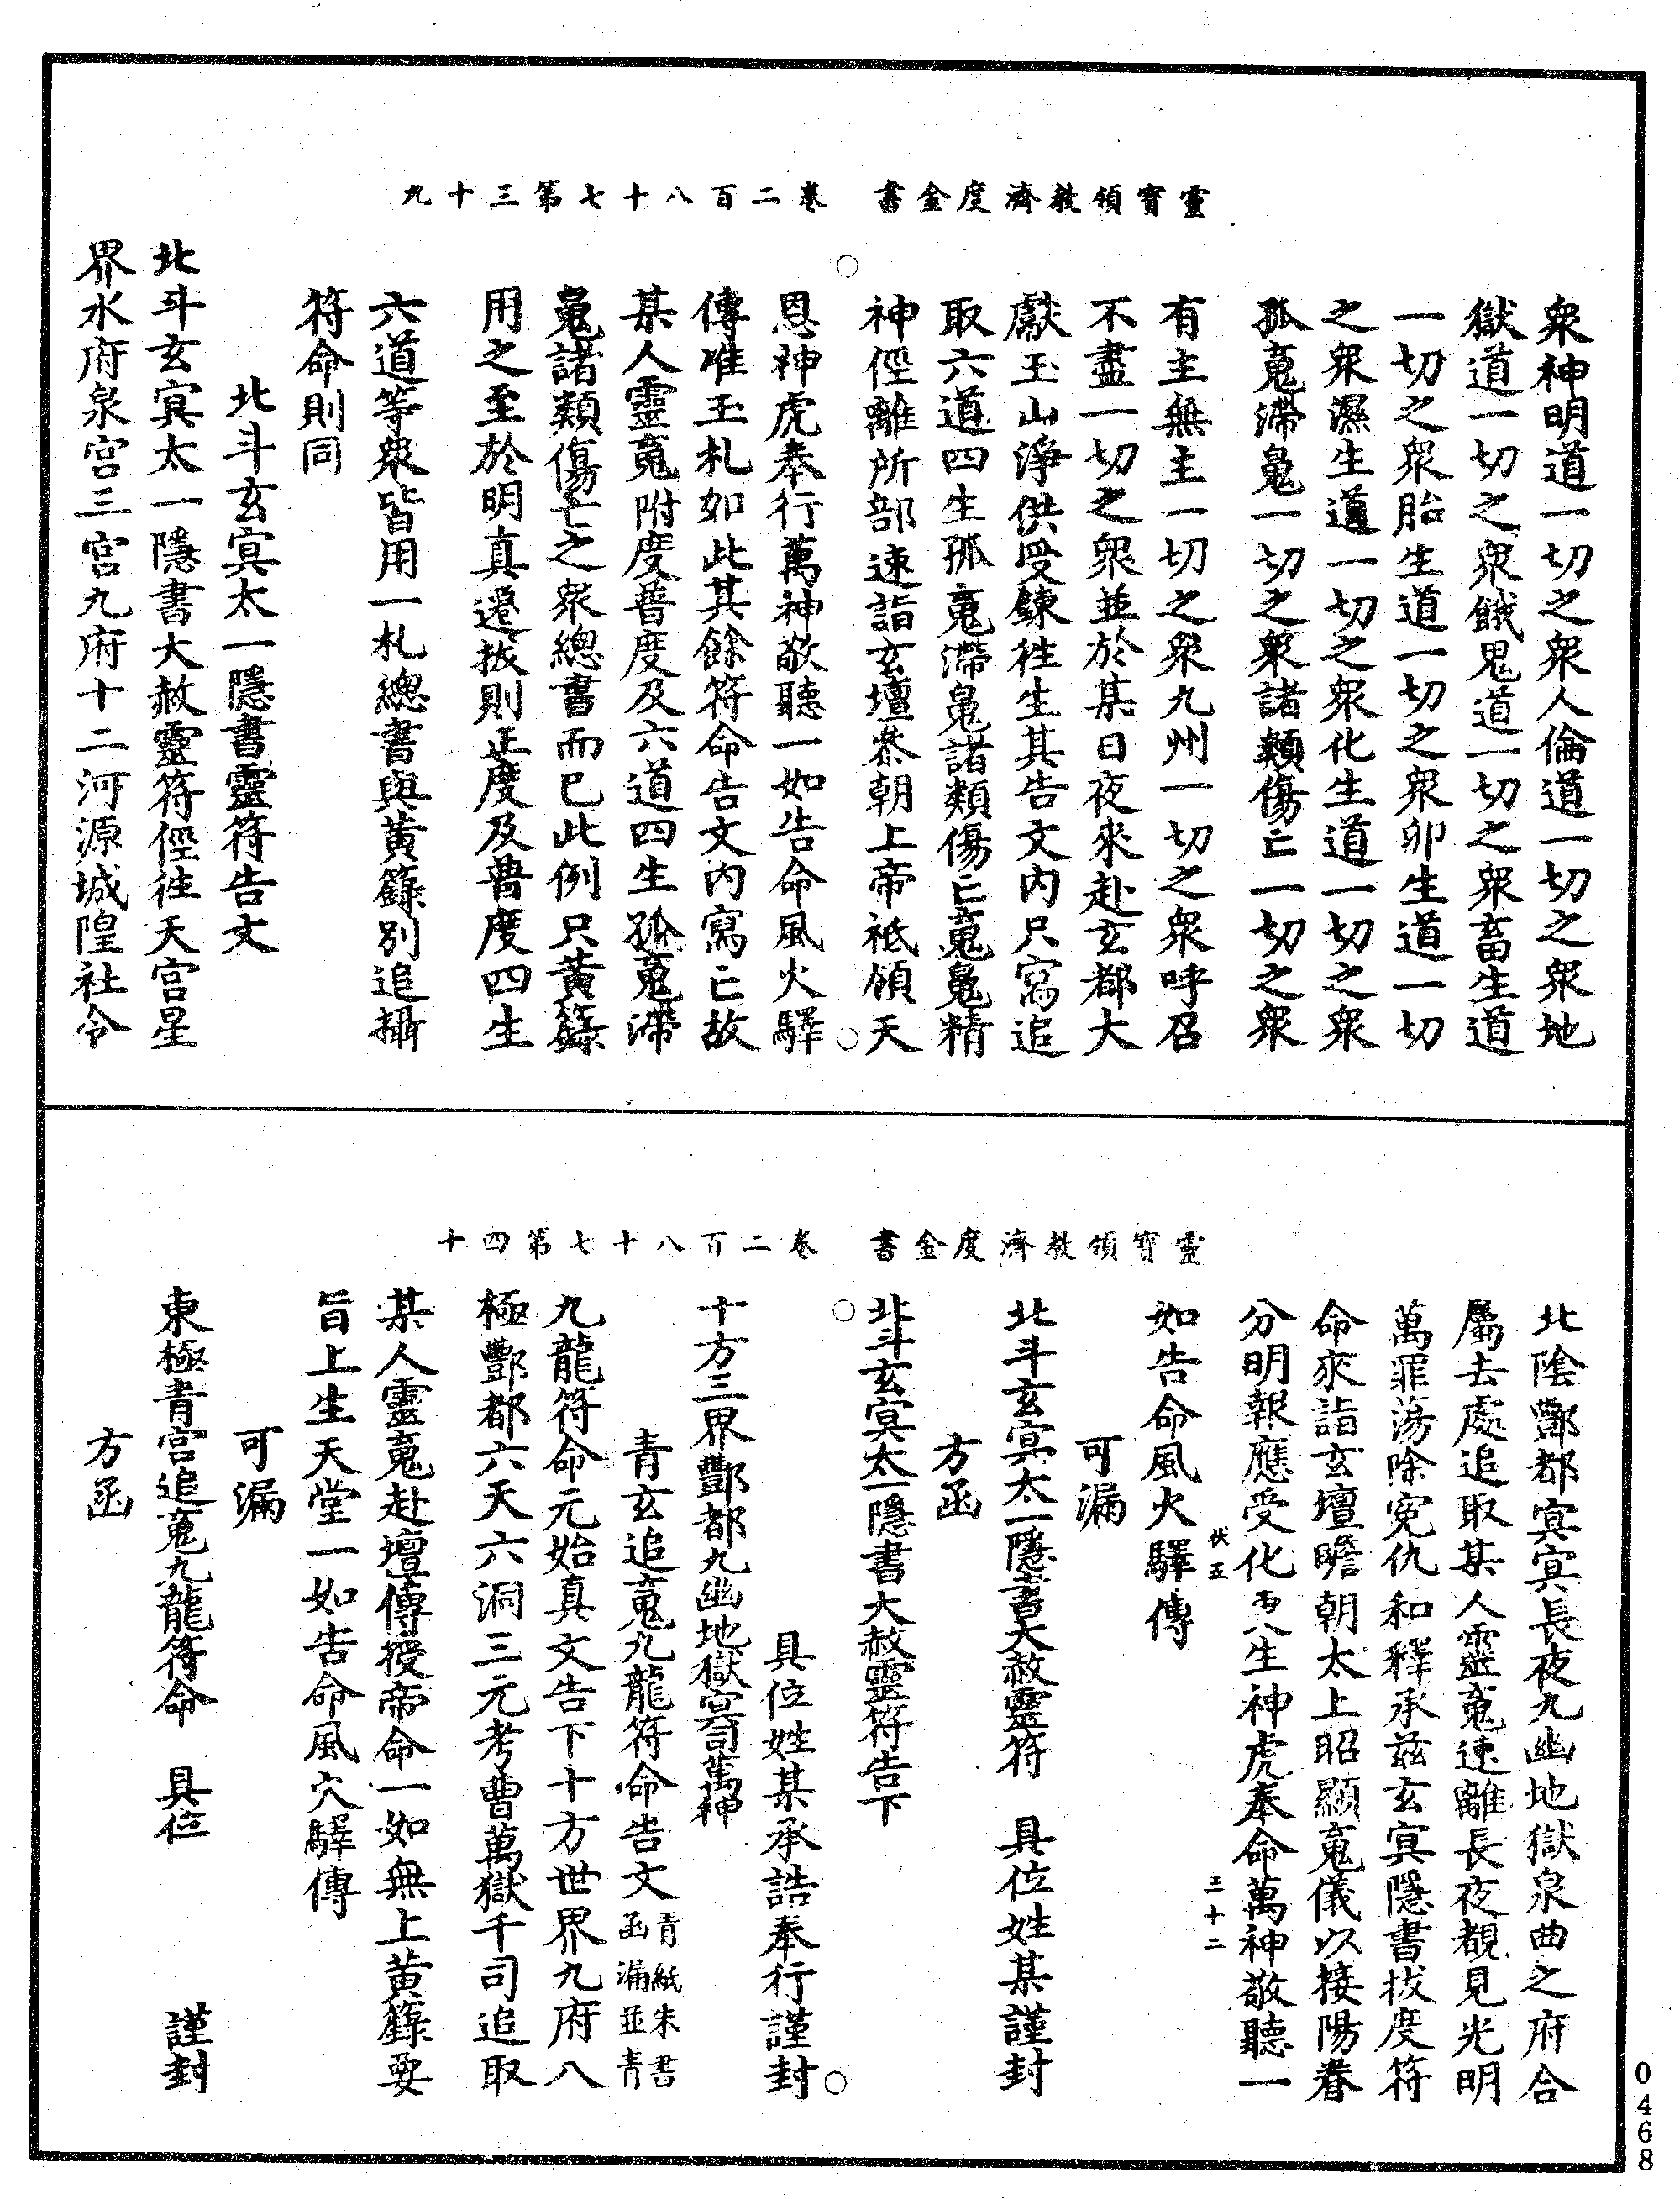 靈寶領教濟度金書　卷二百八十七第三十九
衆神明道一切之衆人倫道一切之衆地
獄道一切之衆餓鬼道一切之衆畜生道
一切之衆胎生道一切之衆卵生道一切
之衆濕生道一切之衆化生道一切之衆
孤䰟滯魄一切之衆諸類傷亡一切之衆
有主無主一切之衆九州一切之衆呼召
不盡一切之衆並於某日夜來赴玄都大
獻玉山淨供受鍊徃生其告文内只寫追
取六道四生孤䰟滯魄諸類傷亡䰟魄精
神徑離所部速詣玄壇叅朝上帝祗領天
恩神虎奉行萬神敬聽一如告命風火驛
傳准玉札如此其餘符命告文内寫亡故
某人靈䰟附度普度及六道四生孤䰟滯
魄諸類傷亡之衆總書而已此例只黃籙
用之至於明真遷拔則正度及普度四生
六道等衆皆用一札總書與黃籙別追攝
符命則同
北斗玄冥太一隱書靈符告文
北斗玄冥太一隱書大赦靈符徑徃天宫星
界水府泉宫三宫九府十二河源城隍社令
靈寶領教濟度金書　卷二百八十七第四十
北陰酆都冥冥長夜九幽地獄泉曲之府合
屬去處追取某人靈䰟速離長夜覩見光明
萬罪蕩除寃仇和釋承兹玄冥隱書拔度符
命來詣玄壇瞻朝太上昭顯䰟儀以接陽眷
分明報應受化更生神虎奉命萬神敬聽一
伏五　三十二
如告命風火驛傳
可漏
北斗玄冥太一隱書大赦靈符　具位姓某謹封
方函
北斗玄冥太一隱書大赦靈符告下
具位姓某承誥奉行謹封
十方三界酆都九幽地獄冥司萬神
青玄追䰟九龍符命告文青紙朱書函漏並青
九龍符命元始真文告下十方世界九府八
極酆都六天六洞三元考曹萬獄千司追取
某人靈䰟赴壇傳授帝命一如無上黃籙要
旨上生天堂一如告命風穴驛傳
可漏
東極青宫追䰟九龍符命　具位　謹封
方函
0468